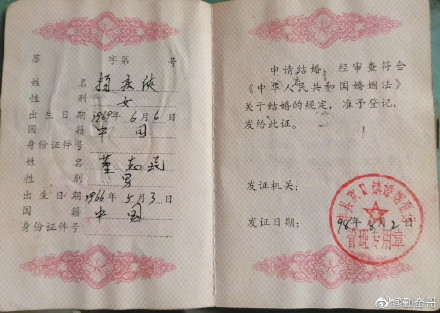 苏 字第 号
姓 名
性 别 女
出生日期 1969年6月6日
国 籍 中国
身份证件号
姓 名 董志民
性 别 男
出生日期 1966年5月3日
国 籍 中国
身份证件号
申请结婚,经审查符合
《中华人民共和国婚姻法》
关于结婚的规定,准予登记,
发给此证。
发证机关:
发证日期: 98年8月2日
管理专用章